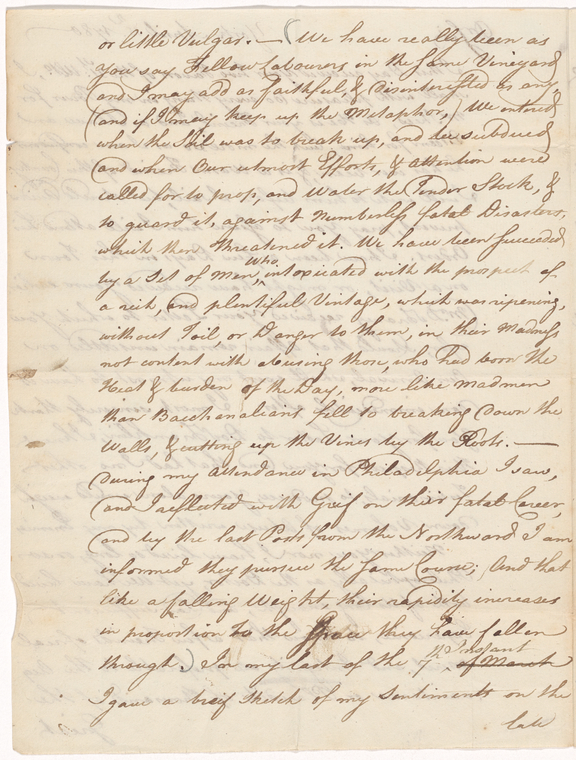 or little Vulgar. — (We have really been as
you say Fellow Labourers in the same Vineyard
and I may add as faithful, & disinterested as any,
(and if I may keep up the Metaphor,) We entered
when the Soil was to break up, and be subdued,
and when Our utmost Efforts, & attention were
called for to prop, and Water the Tender Stock, &
to guard it, against Numberless fatal Disasters,
which then threatened it. We have been succeeded
by a set of men who intoxicated with the prospect of
a rich, and plentiful Vintage, which was ripening,
without Toil, or Danger to them, in their Madness
not content with abusing those, who had born the
Heat & burden of the Day, more like madmen
than Bacchanalians fell to breaking Down the
Walls, & cutting up the Vines by the Roots. —
During my attendance in Philadelphia I saw,
and I reflected with Greif on their fatal Career,
and by the last Posts from the Northward I am
informed they pursue the same Course; And that
like a falling Weight, their rapidity increases
in proportion to the Space they have fallen
through.) In my last of the 7th instant of March
I gave a breif Sketch of my Sentiments on the
late